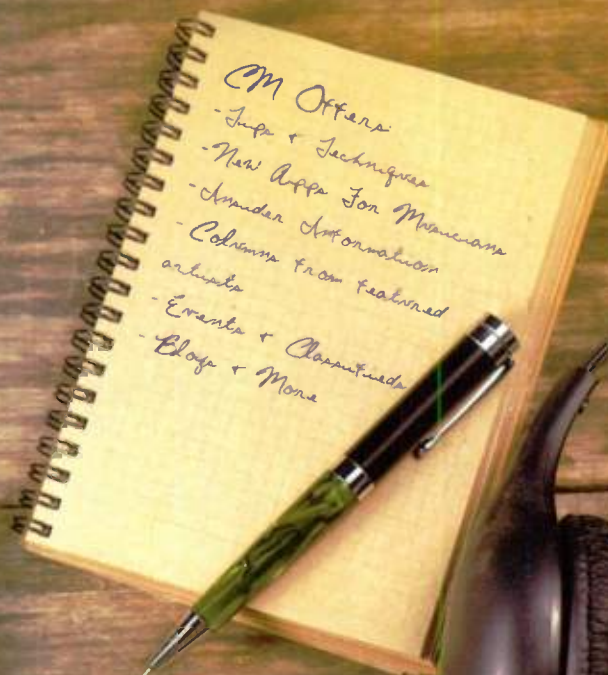 CM Offers:
-Tips + Techniques
-New Apps For Musicians
-Insider Information
-Columns from featured
artists
-Events + Classifieds
-Blogs + More